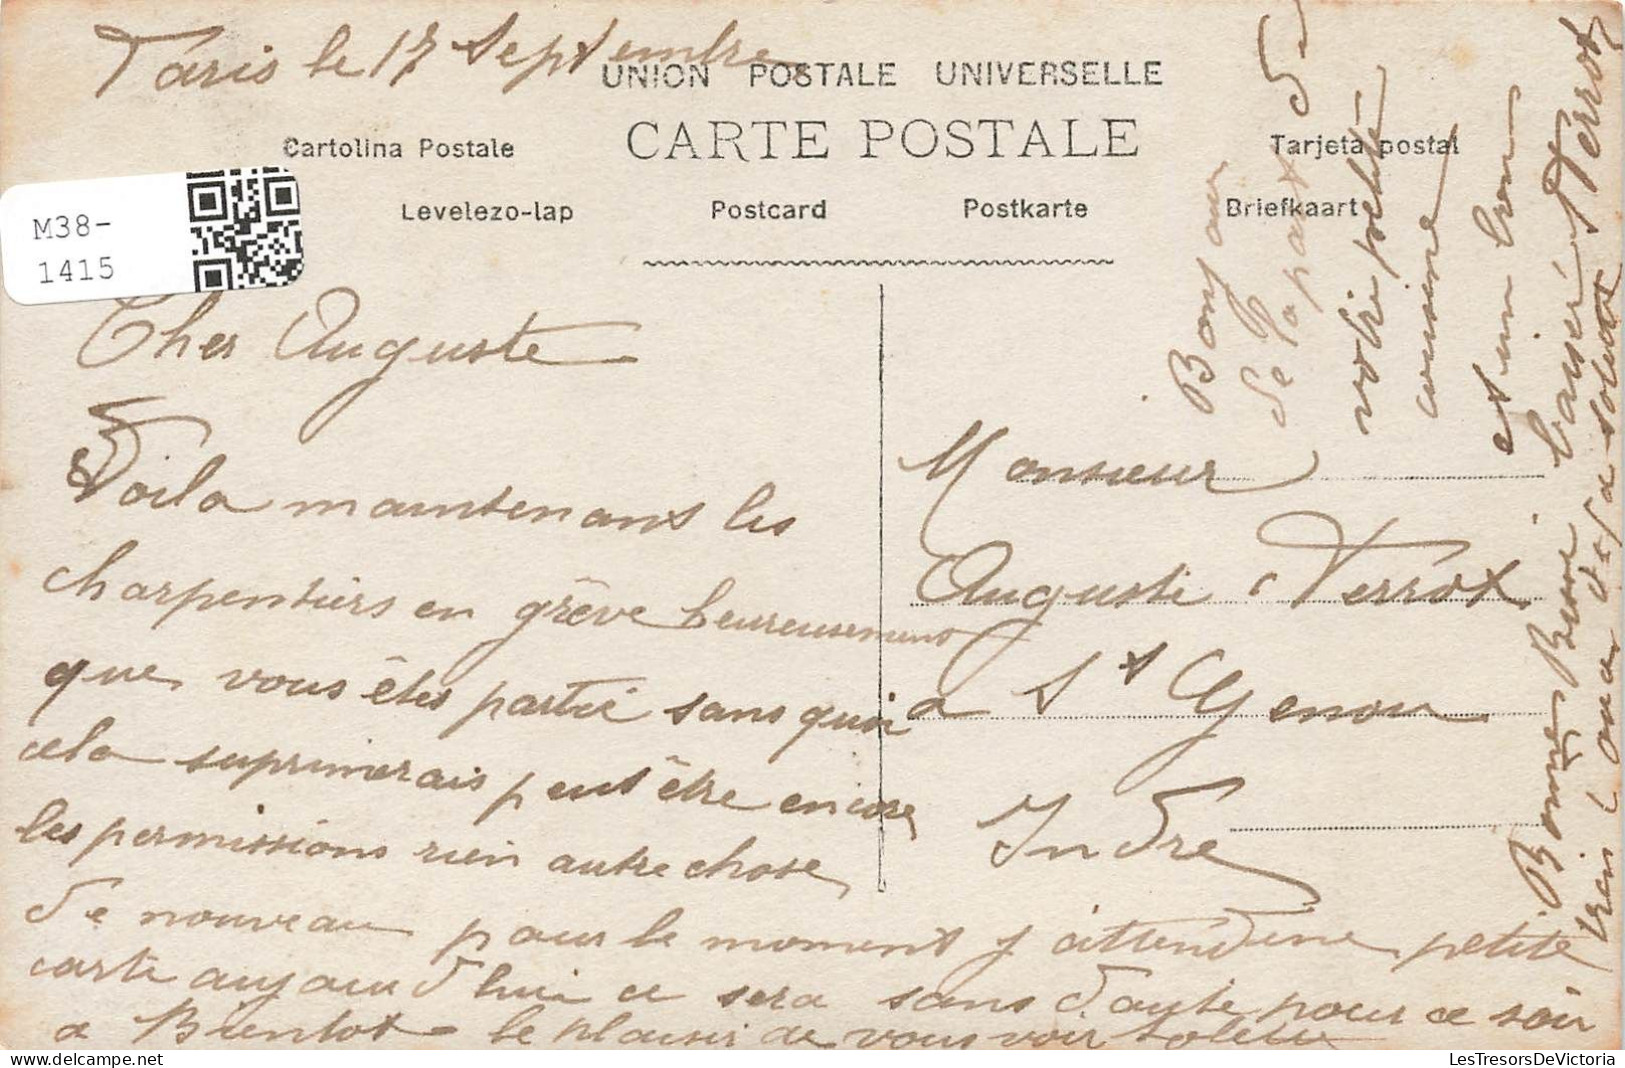 Paris le 17 Septembre
UNION POSTALE UNIVERSELLE
CARTE POSTALE
Cartolina Postale
Tarjeta postal
Levelezo-lap
Postcard
Postkarte
Briefkaart
M38-
1415
Cher Auguste
Voila maintenant les
charpentiers en grève heureusement
que vous êtes partie sans quoi
cela suprimerais peut être encore
les permissions rien autre chose
de nouveau pour le moment j'attend une petite
carte aujourd'hui ce sera sans doute pour ce soir
a Bientot le plaisir de vous voir
Monsieur
Auguste Terrot
a St Genou
Indre
Bonjour
de la part de
votre petite
cousine
et un bon
baiser Terrot